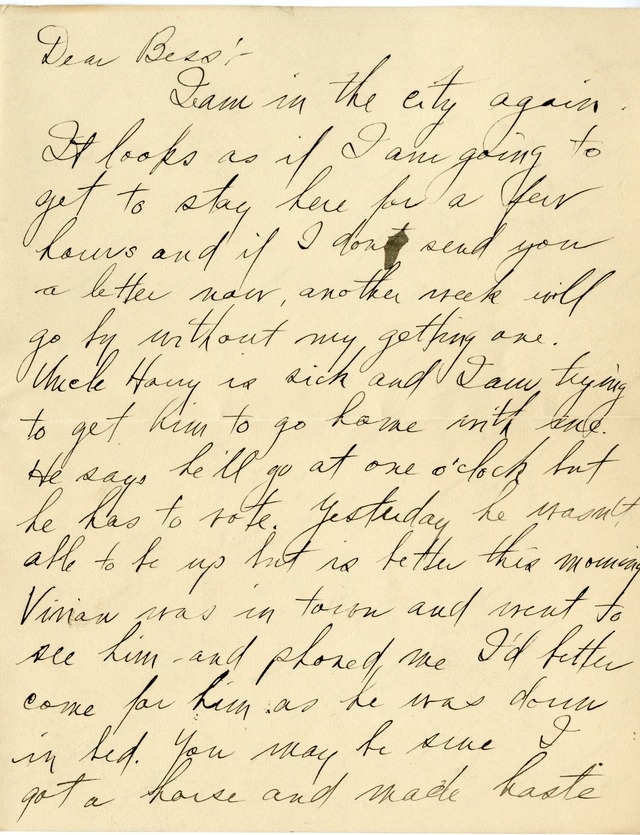 Dear Bess:-
I am in the city again.
It looks as if I am going to
get to stay here for a few
hours and if I dont send you
a letter now, another week will
go by without my getting one.
Uncle Harry is sick and I am trying
to get him to go home with me.
He says he'll go at one o'clock but
he has to vote. Yesterday he wasn't
able to be up but is better this morning
Vivian was in town and went to
see him and phoned me I'd better
come for him as he was down
in bed. You may be sure I
got a horse and made haste